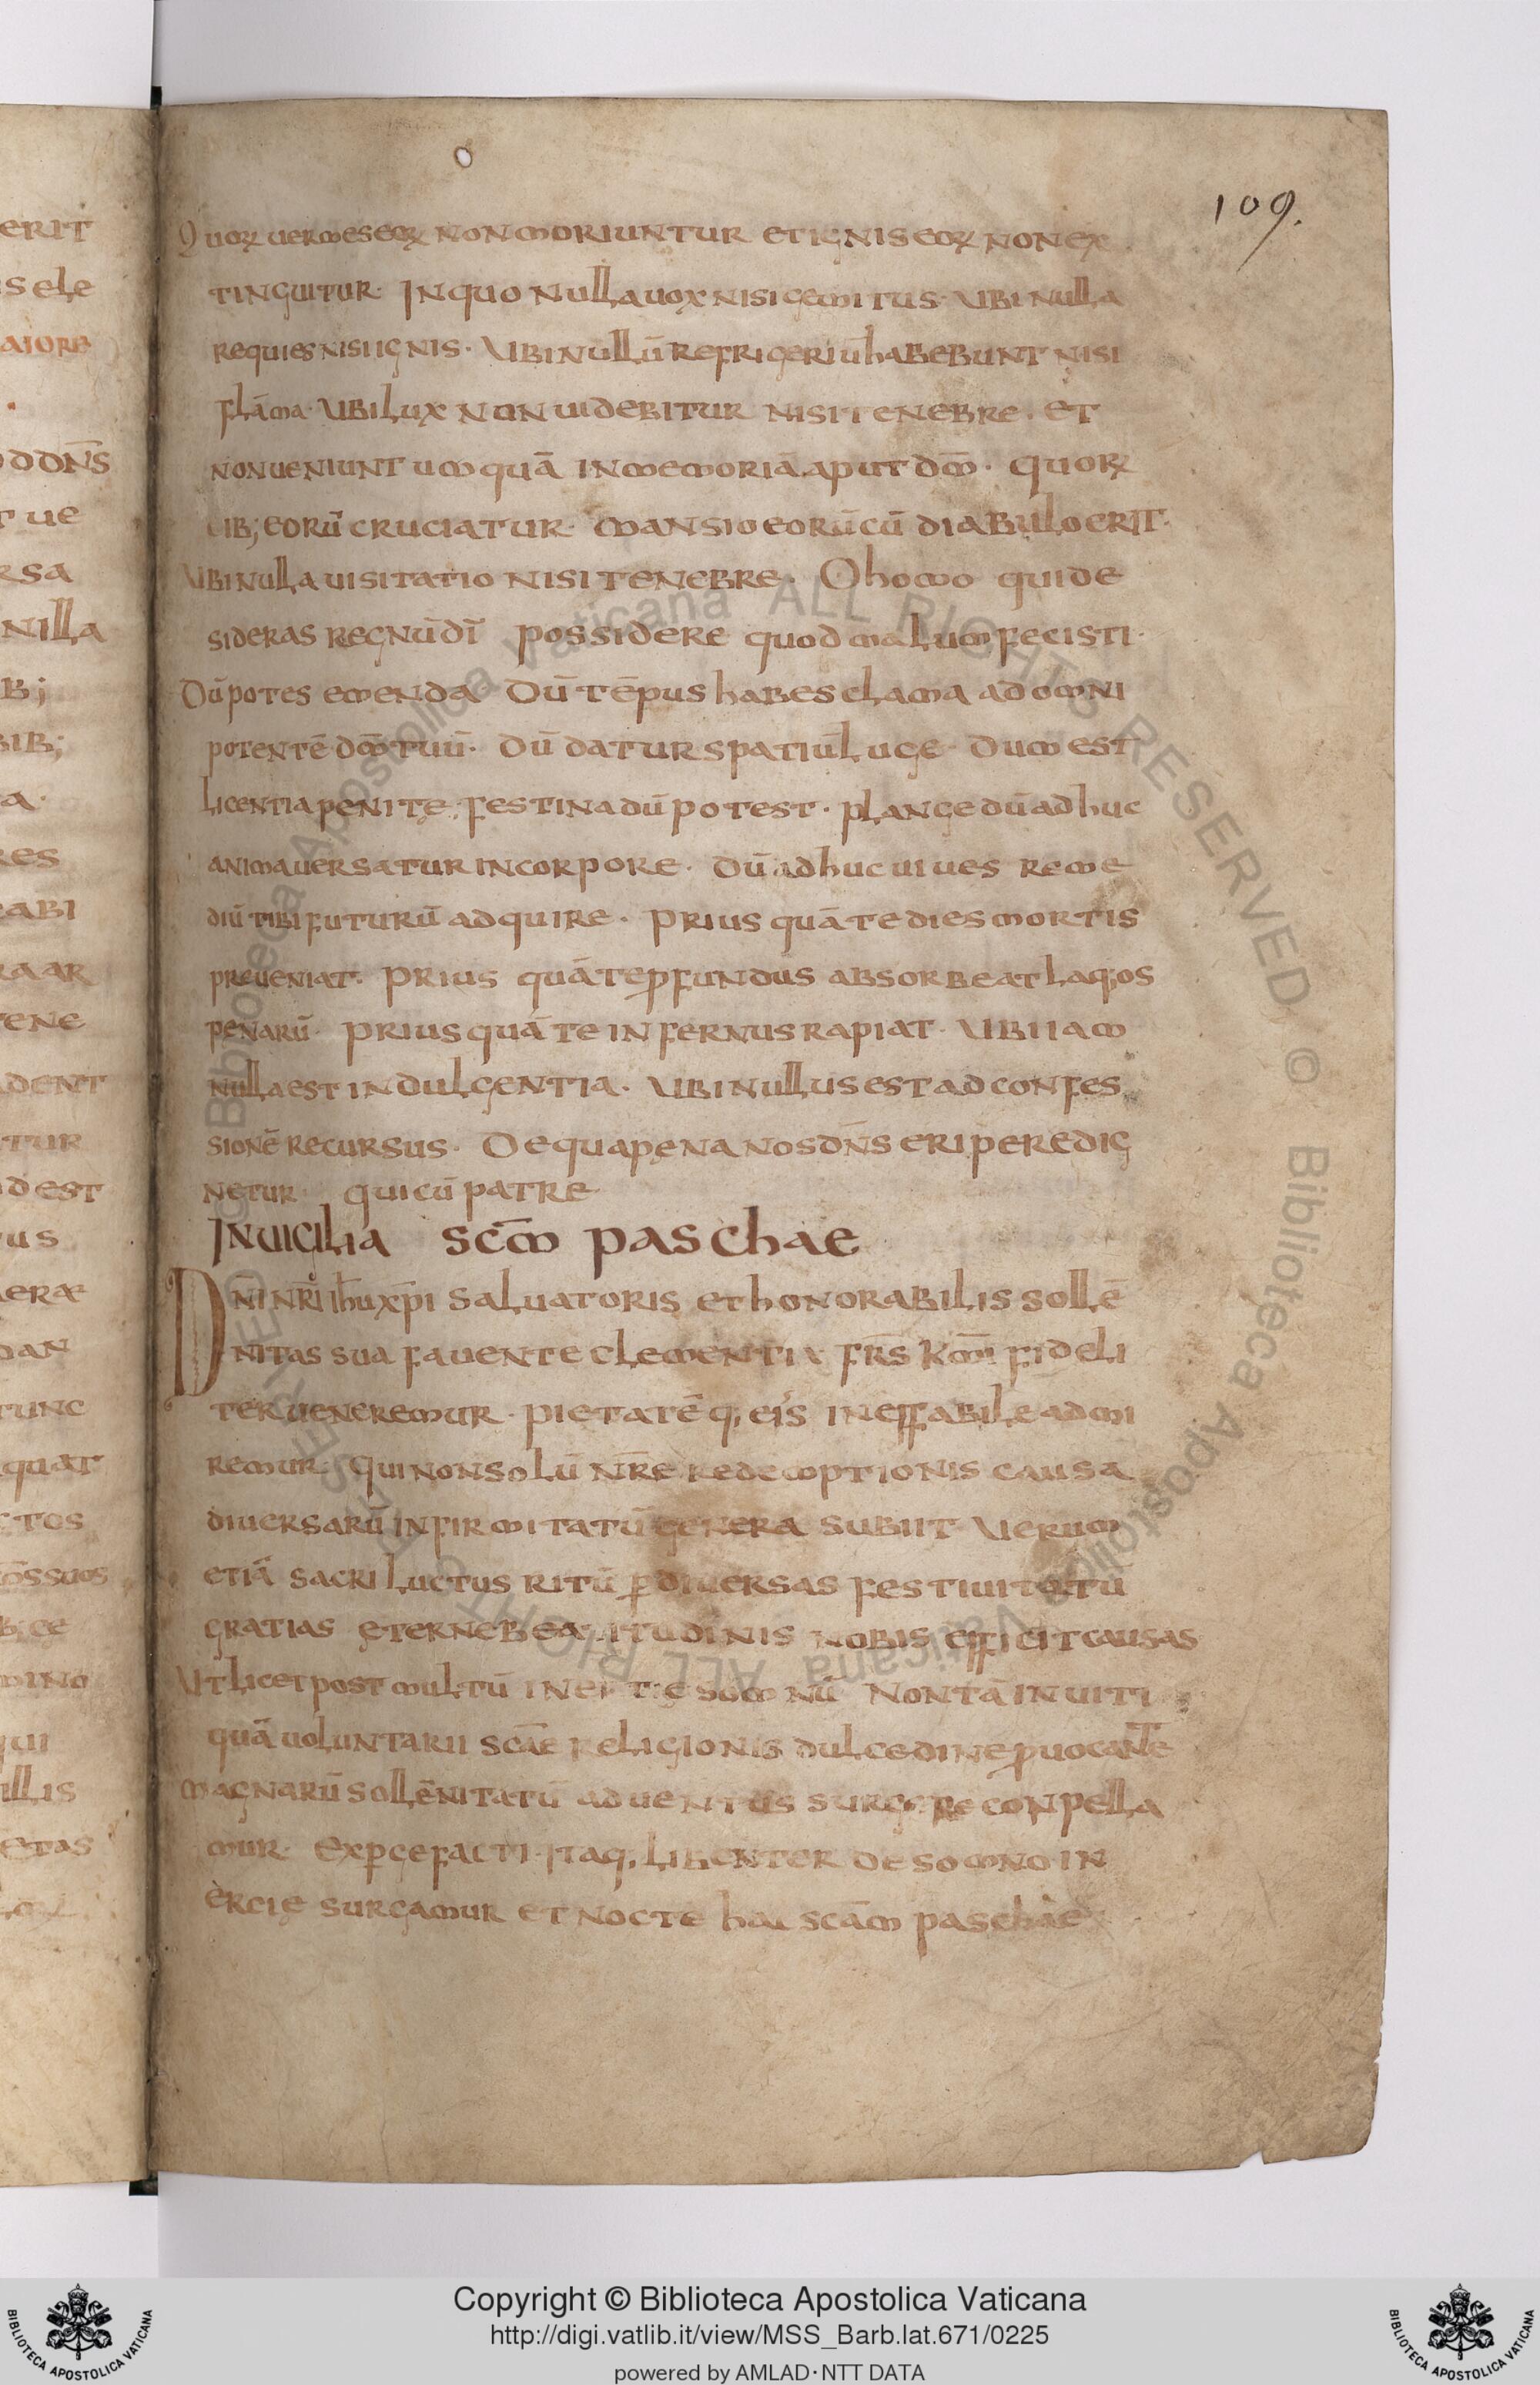 109.
erit
sele
aiore
ddn̄s
t ue
rsa
nilla
b;
bib;
a·
res
cabi
ra ar
tene
dent
tur
d est
us
eræ
dan
tunc
quat
ctos
suos
b; ce
mino
qui
illis
etas
Quoꝝ uermes eoꝝ non moriuntur et ignis eoꝝ non ex
tinguitur· In quo nulla uox nisi gemitus· Ubi nulla
requies nisi ignis· Ubi nullū refrigeriū habebunt nisi
flāma· Ubi lux non uidebitur nisi tenebre· et
non ueniunt umquā in memoriā aput dm̄· quoꝝ
cib; eorū cruciatur· mansio eorū cū diabulo erit·
Ubi nulla uisitatio nisi tenebre· O homo qui de
sideras regnū dī possidere quod malum fecisti·
Dū potes emenda· Dū tēpus habes clama ad omni
potentē dm̄ tuū· dū datur spatiū luge· dum est
licentia penitę· festina dū potest· plange dū adhuc
anima uersatur in corpore· dū adhuc uiues reme
diū tibi futurū adquire· prius quā te dies mortis
preueniat· prius quā te ꝓfundus absorbeat laq;os
penarū· prius quā te infernus rapiat· Ubi iam
nulla est indulgentia· Ubi nullus est ad confes
sionē recursus· De qua pena nos dn̄s eripere dig
netur qui cū patre
In uigilia scm̄ paschae
Dn̄i nr̄i ihu xp̄i saluatoris et honorabilis sollē
nitas sua fauente clementia fr̄s km̄i fideli
ter ueneremur· pietatēq; eis ineffabile admi
remur· qui non solū nr̄e redemptionis causa
diuersarū infirmitatū genera subiit Uerum
etiā sacri luctus ritū ꝑ diuersas festiuitatū
gratias ęterne beatitudinis nobis efficit causas
Ut licet post multū inertie somnū non tā inuiti
quā uoluntarii scāe religionis dulcedine ꝓuocante
magnarū sollēnitatū aduentus surgere conpella
mur· Exꝑgefacti itaq; libenter de somno in
ercie surgamur et nocte hac scām paschae
Copyright © Biblioteca Apostolica Vaticana
http://digi.vatlib.it/view/MSS_Barb.lat.671/0225
powered by AMLAD·NTT DATA
BIBLIOTECA APOSTOLICA VATICANA
BIBLIOTECA APOSTOLICA VATICANA
© Biblioteca Apostolica Vaticana ALL RIGHTS RESERVED © Biblioteca Apostolica Vaticana ALL RIGHTS RESERVED